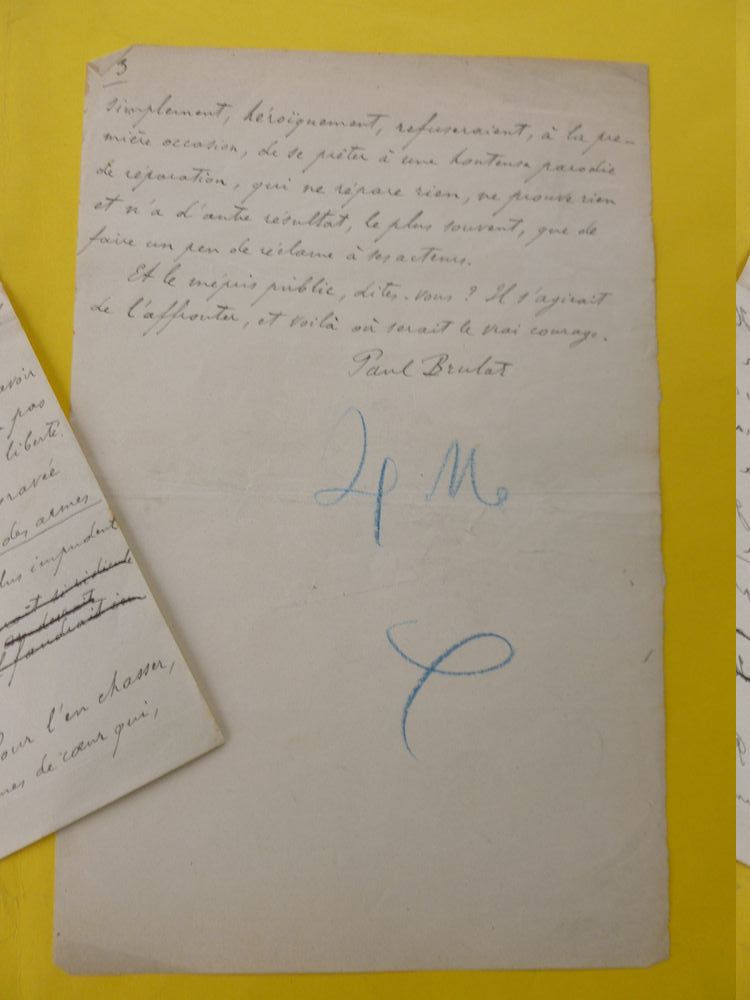 3
simplement, héroïquement, refuseraient, à la pre-
mière occasion, de se prêter à une honteuse parodie
de réparation, qui ne répare rien, ne prouve rien
et n'a d'autre résultat, le plus souvent, que de
faire un peu de réclame à ses acteurs.
Et le mépris public, dites-vous ? Il s'agirait
de l'affronter, et voilà où serait le vrai courage.
Paul Brulat
avoir
pas
liberté.
gravée
des armes
plus impudent
Pour l'en chasser,
mes de cœur qui,